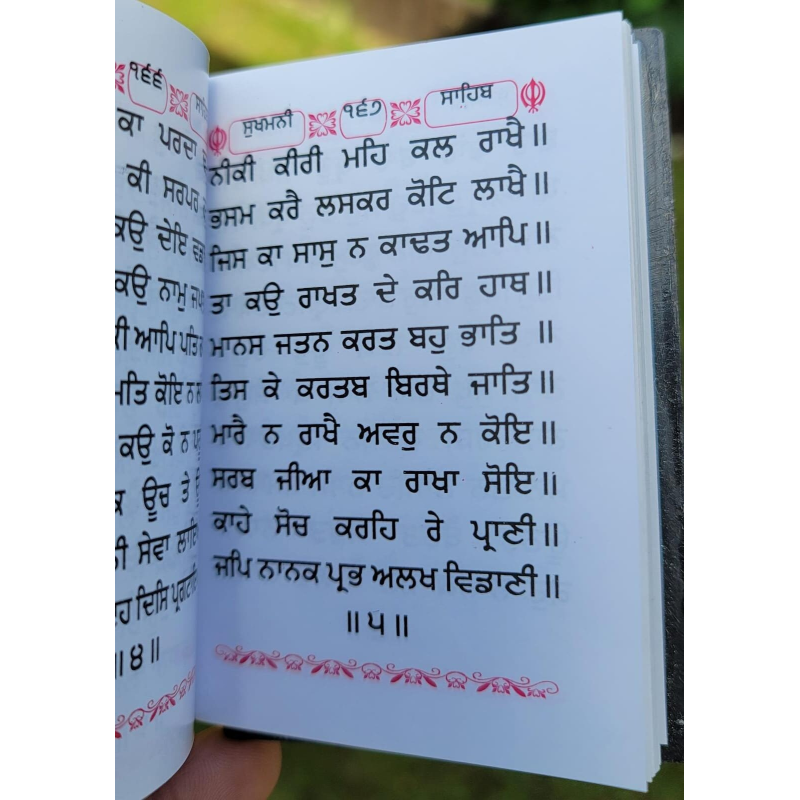 ੧੬੬
ਕਾ ਪਰਦਾ
ਕੀ ਸਰਪਰ
ਕਉ ਦੇਇ
ਕਉ ਨਾਮੁ
ਕੀ ਆਪਿ ਪਤਿ
ਮਤਿ ਕੋਇ ਨ
ਕਉ ਕੋ ਨ
ਊਚ ਤੇ
ਸੇਵਾ
ਦਿਸਿ
॥੪॥
ਸੁਖਮਨੀ ੧੬੭ ਸਾਹਿਬ
ਨੀਕੀ ਕੀਰੀ ਮਹਿ ਕਲ ਰਾਖੈ॥
ਭਸਮ ਕਰੈ ਲਸਕਰ ਕੋਟਿ ਲਾਖੈ॥
ਜਿਸ ਕਾ ਸਾਸੁ ਨ ਕਾਢਤ ਆਪਿ॥
ਤਾ ਕਉ ਰਾਖਤ ਦੇ ਕਰਿ ਹਾਥ॥
ਮਾਨਸ ਜਤਨ ਕਰਤ ਬਹੁ ਭਾਤਿ ॥
ਤਿਸ ਕੇ ਕਰਤਬ ਬਿਰਥੇ ਜਾਤਿ॥
ਮਾਰੈ ਨ ਰਾਖੈ ਅਵਰੁ ਨ ਕੋਇ॥
ਸਰਬ ਜੀਆ ਕਾ ਰਾਖਾ ਸੋਇ॥
ਕਾਹੇ ਸੋਚ ਕਰਹਿ ਰੇ ਪ੍ਰਾਣੀ॥
ਜਪਿ ਨਾਨਕ ਪ੍ਰਭ ਅਲਖ ਵਿਡਾਣੀ॥
॥੫॥